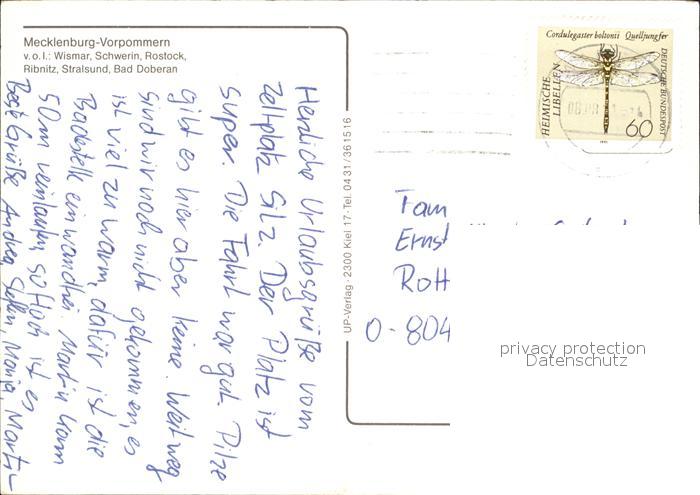 Mecklenburg-Vorpommern
v. o. l.: Wismar, Schwerin, Rostock,
Ribnitz, Stralsund, Bad Doberan
Herzliche Urlaubsgrüße vom
Zeltplatz Silz. Der Platz ist
super. Die Fahrt war gut. Pilze
gibt es hier aber keine. Weit weg
sind wir noch nicht gekommen, es
ist viel zu warm, dafür ist die
Badestelle einwandfrei. Martin kann
50m reinlaufen, so flach ist es
Beste Grüße Andrea, Maria, Martin
UP-Verlag · 2300 Kiel 17 · Tel. 04 31/36 15 16
Cordulegaster boltonii Quelljungfer
HEIMISCHE
LIBELLEN
DEUTSCHE BUNDESPOST
60
1991
Fam
Ernst
Rott
O-804
privacy protection
Datenschutz